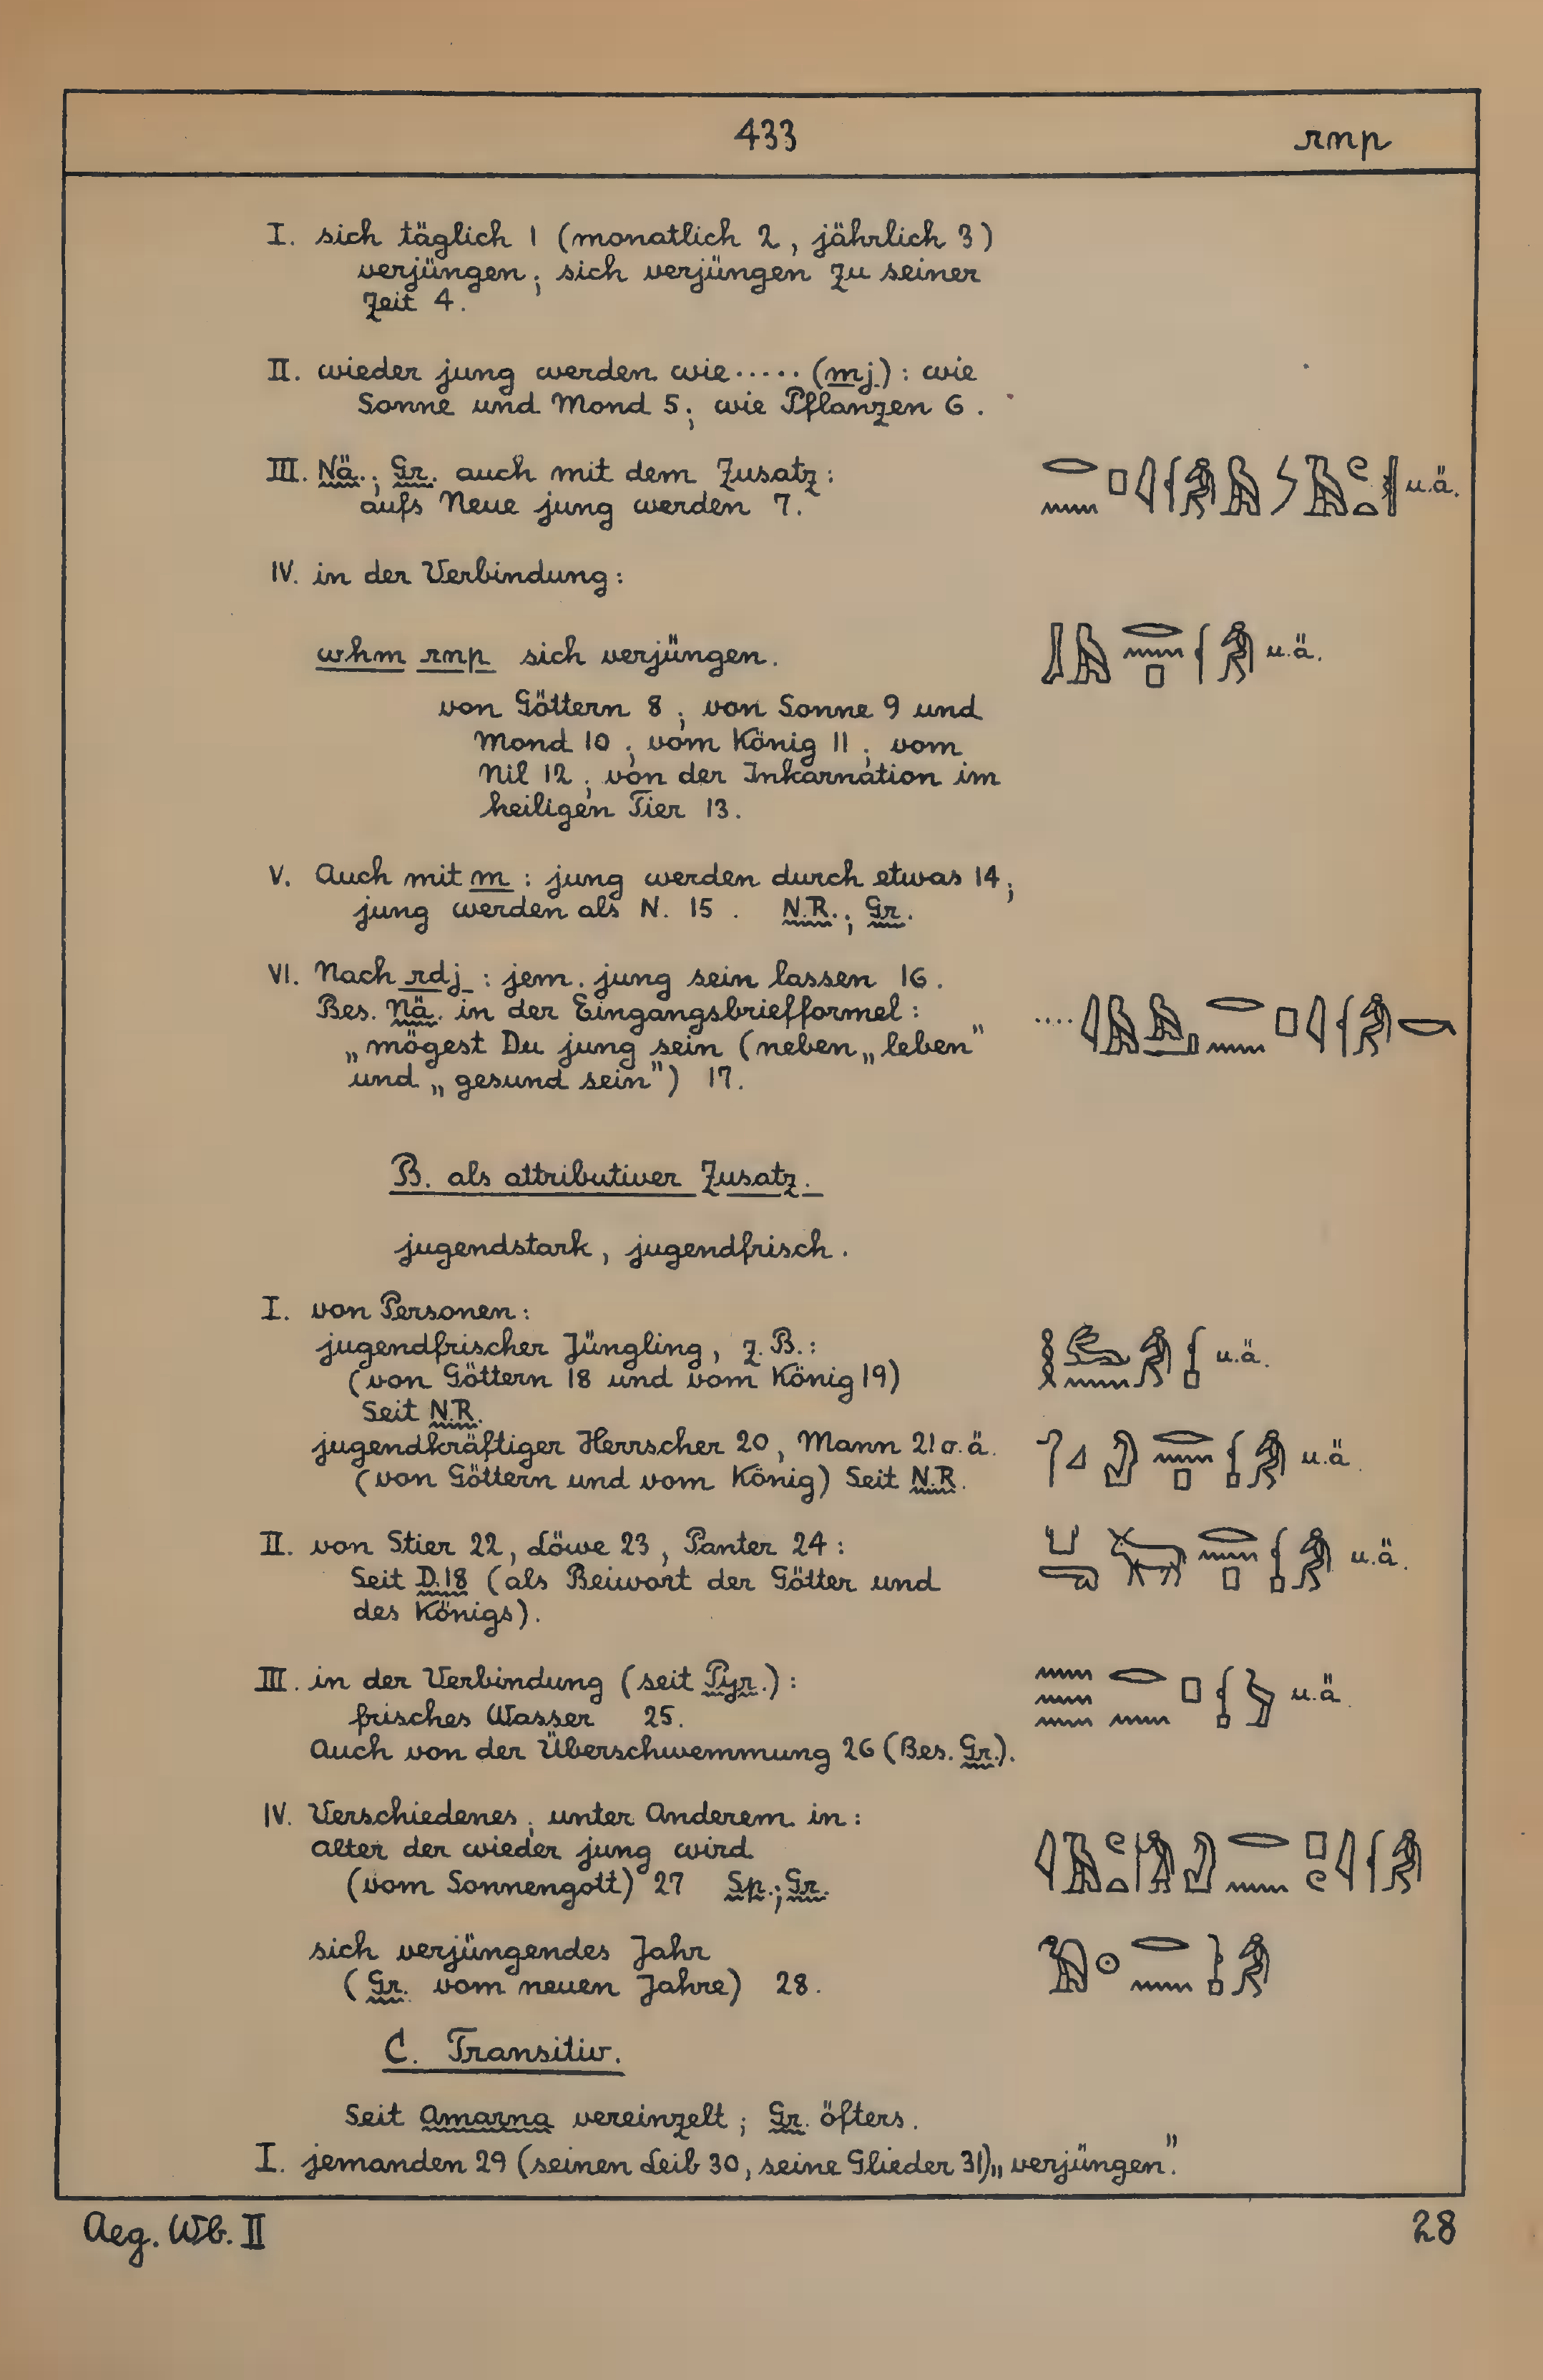 433 rnp
I. sich täglich 1 (monatlich 2, jährlich 3)
verjüngen; sich verjüngen zu seiner
Zeit 4.
II. wieder jung werden wie ..... (mj) : wie
Sonne und Mond 5; wie Pflanzen 6.
III. Nä.; Gr. auch mit dem Zusatz: u.ä.
aufs Neue jung werden 7.
IV. in der Verbindung:
whm rnp sich verjüngen. u.ä.
von Göttern 8; von Sonne 9 und
Mond 10; vom König 11; vom
Nil 12; von der Inkarnation im
heiligen Tier 13.
V. Auch mit m : jung werden durch etwas 14;
jung werden als N. 15. N.R.; Gr.
VI. Nach rdj : jem. jung sein lassen 16.
Bes. Nä. in der Eingangsbriefformel: ....
„mögest Du jung sein (neben „leben"
und „gesund sein") 17.
B. als attributiver Zusatz.
jugendstark, jugendfrisch.
I. von Personen:
jugendfrischer Jüngling, z.B.: u.ä.
(von Göttern 18 und vom König 19)
Seit N.R.
jugendkräftiger Herrscher 20, Mann 21 o.ä. u.ä.
(von Göttern und vom König) Seit N.R.
II. von Stier 22, Löwe 23, Panter 24: u.ä.
Seit D.18 (als Beiwort der Götter und
des Königs).
III. in der Verbindung (seit Pyr.): u.ä.
frisches Wasser 25.
Auch von der Überschwemmung 26 (Bes. Gr.).
IV. Verschiedenes; unter Anderem in:
Alter der wieder jung wird
(vom Sonnengott) 27 Sp.; Gr.
sich verjüngendes Jahr
(Gr. vom neuen Jahre) 28.
C. Transitiv.
Seit Amarna vereinzelt; Gr. öfters.
I. jemanden 29 (seinen Leib 30, seine Glieder 31) „verjüngen".
Aeg. Wb. II 28